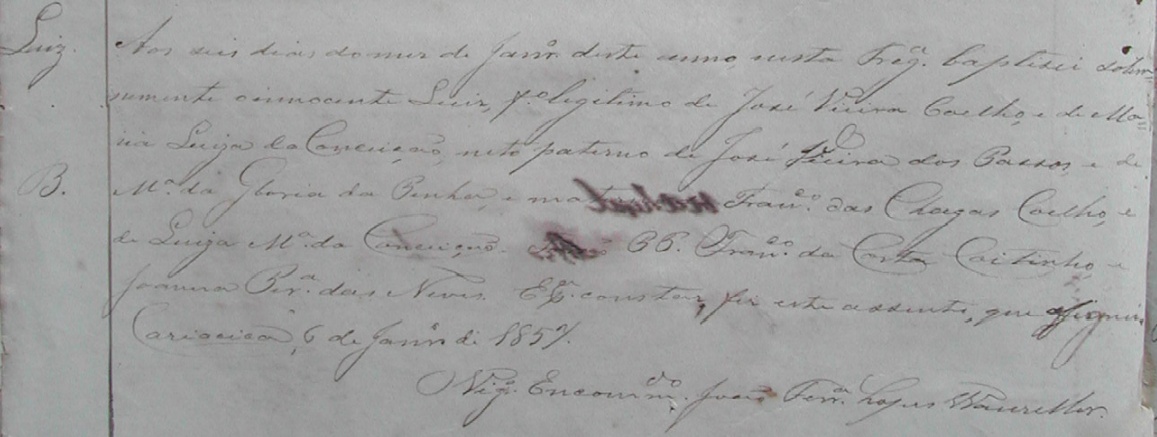 Luiz. Aos seis dias do mez de Janr.º deste anno, nesta Freg.ª baptisei solem=
nemente o innocente Luiz, f.º legitimo de José Vieira Coelho, e de Ma=
ria Luiza da Conceição, neto paterno de José Vieira dos Passos, e de
B. M.ª da Gloria da Penha, e Fran.co das Chagas Coelho, e
de Luiza M.ª da Conceição. PP. Fran.co da Costa Coitinho, e
Joanna Per.ª das Neves. E p.ª constar, fiz este assento, que assignei.
Cariacica, 6 de Janr.º de 1857.
O Vig.º Encomm.do João Ferr.ª Lopes